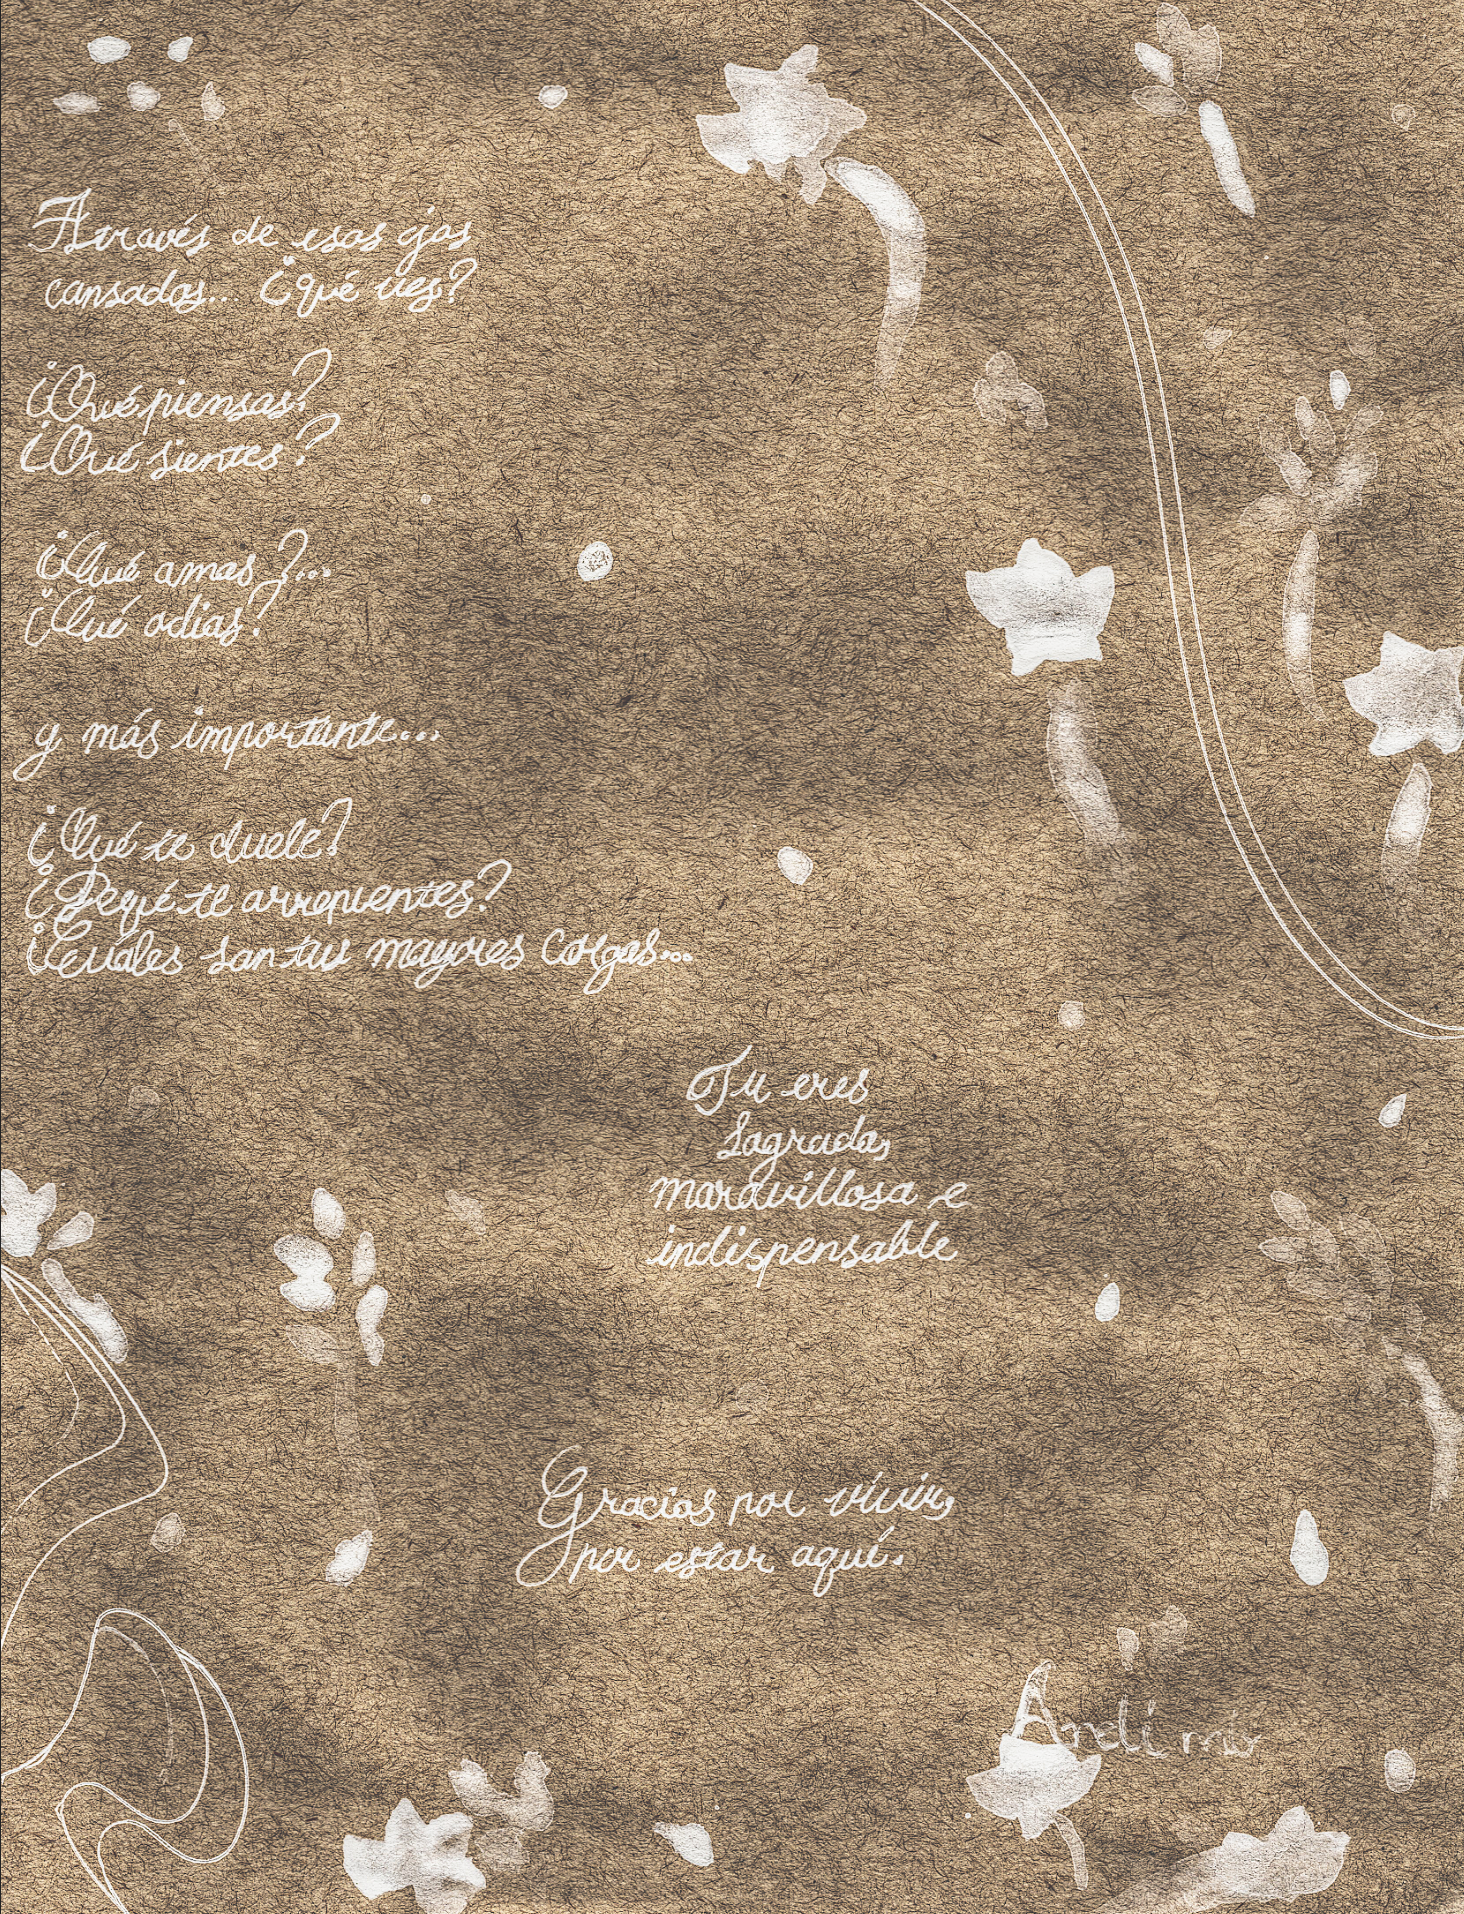 Através de esos ojos
cansados... ¿qué ves?
¿Qué piensas?
¿Qué sientes?
¿Qué amas?...
¿Qué odias?
y más importante...
¿Qué te duele?
¿Dequé te arrepientes?
¿Cuáles son tus mayores cargas...
Tu eres
sagrada,
maravillosa e
indispensable
Gracias por vivir,
por estar aquí.